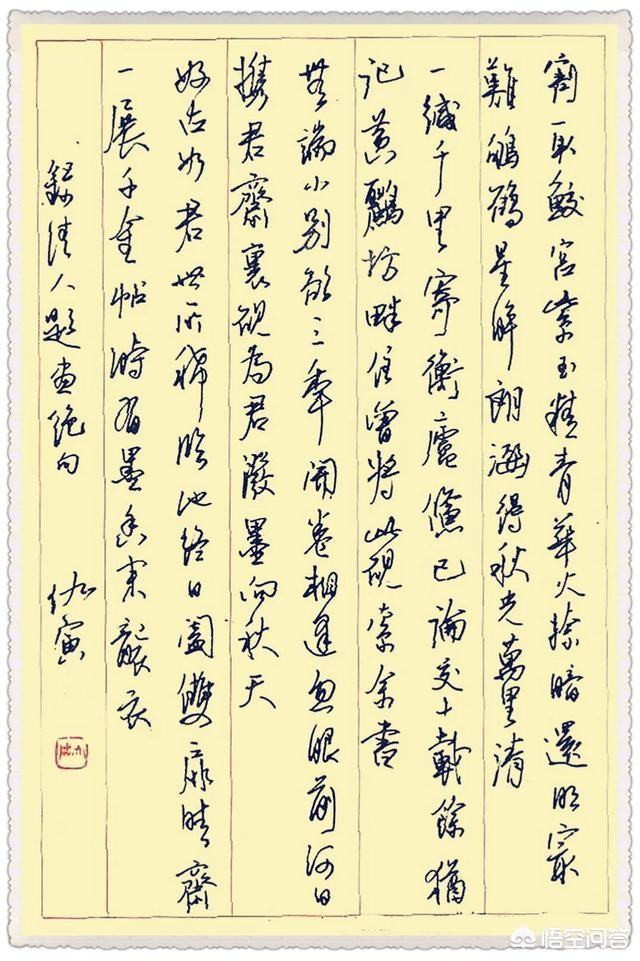 割取鮫宮紫玉精青華火捺暗還明㝡
難鴝鵒星眸朗涵得秋光萬里清
一緘千里寄衡廬儻已論交十載餘猶
記黃鸝坊畔住曾將此硯索余書
無端小別三年開卷相逢忽眼前何日
攜君齋裏硯為君潑墨向秋天
好古如君世所稀臨池終日闔雙扉晴齋
一展千金帖時有墨香來襲衣
錄清人題畫絕句 伽寅
悟空问答